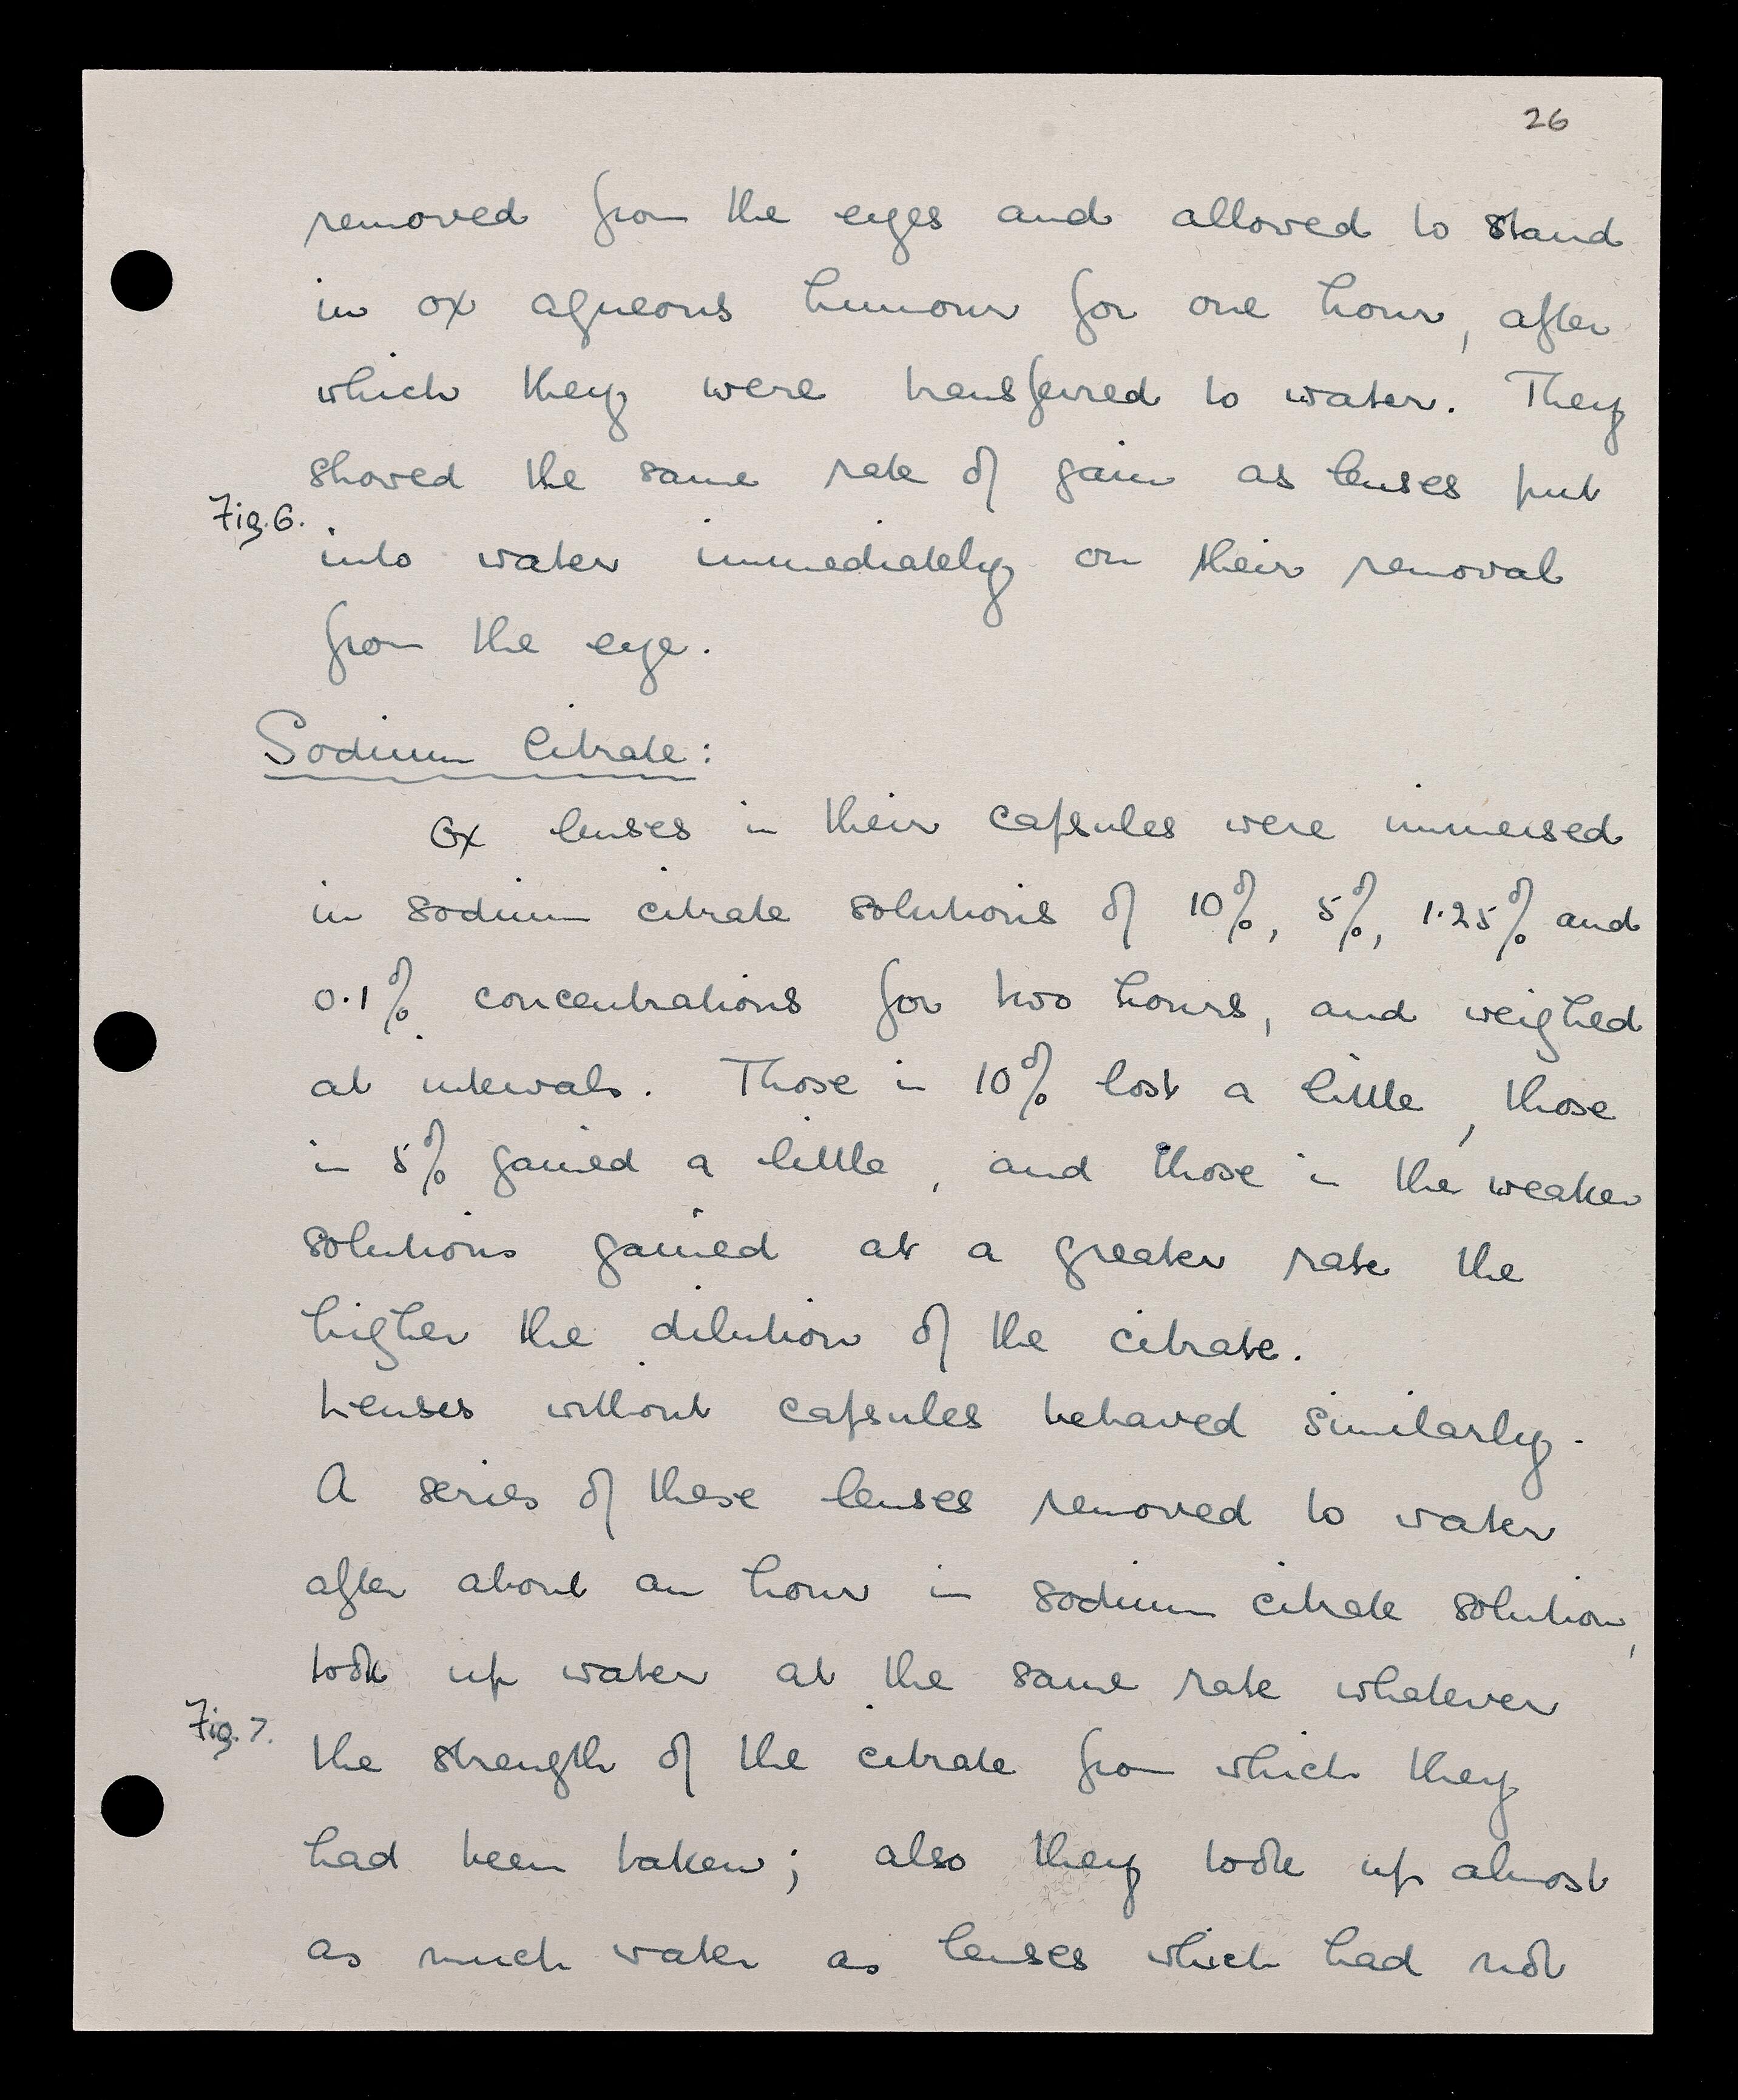 26
removed from the eyes and allowed to stand
in ox aqueous humour for one hour, after
which they were transferred to water. They
showed the same rate of gain as lenses put
Fig. 6.
into water immediately on their removal
from the eye.
Sodium Citrate:
Ox lenses in their capsules were immersed
in sodium citrate solutions of 10%, 5%, 1.25% and
0.1% concentrations for two hours, and weighed
at intervals. Those in 10% lost a little, those
in 5% gained a little, and those in the weaker
solutions gained at a greater rate the
higher the dilution of the citrate.
Lenses without capsules behaved similarly.
A series of these lenses removed to water
after about an hour in sodium citrate solution,
took up water at the same rate whatever
Fig. 7.
the strength of the citrate from which they
had been taken; also they took up almost
as much water as lenses which had not